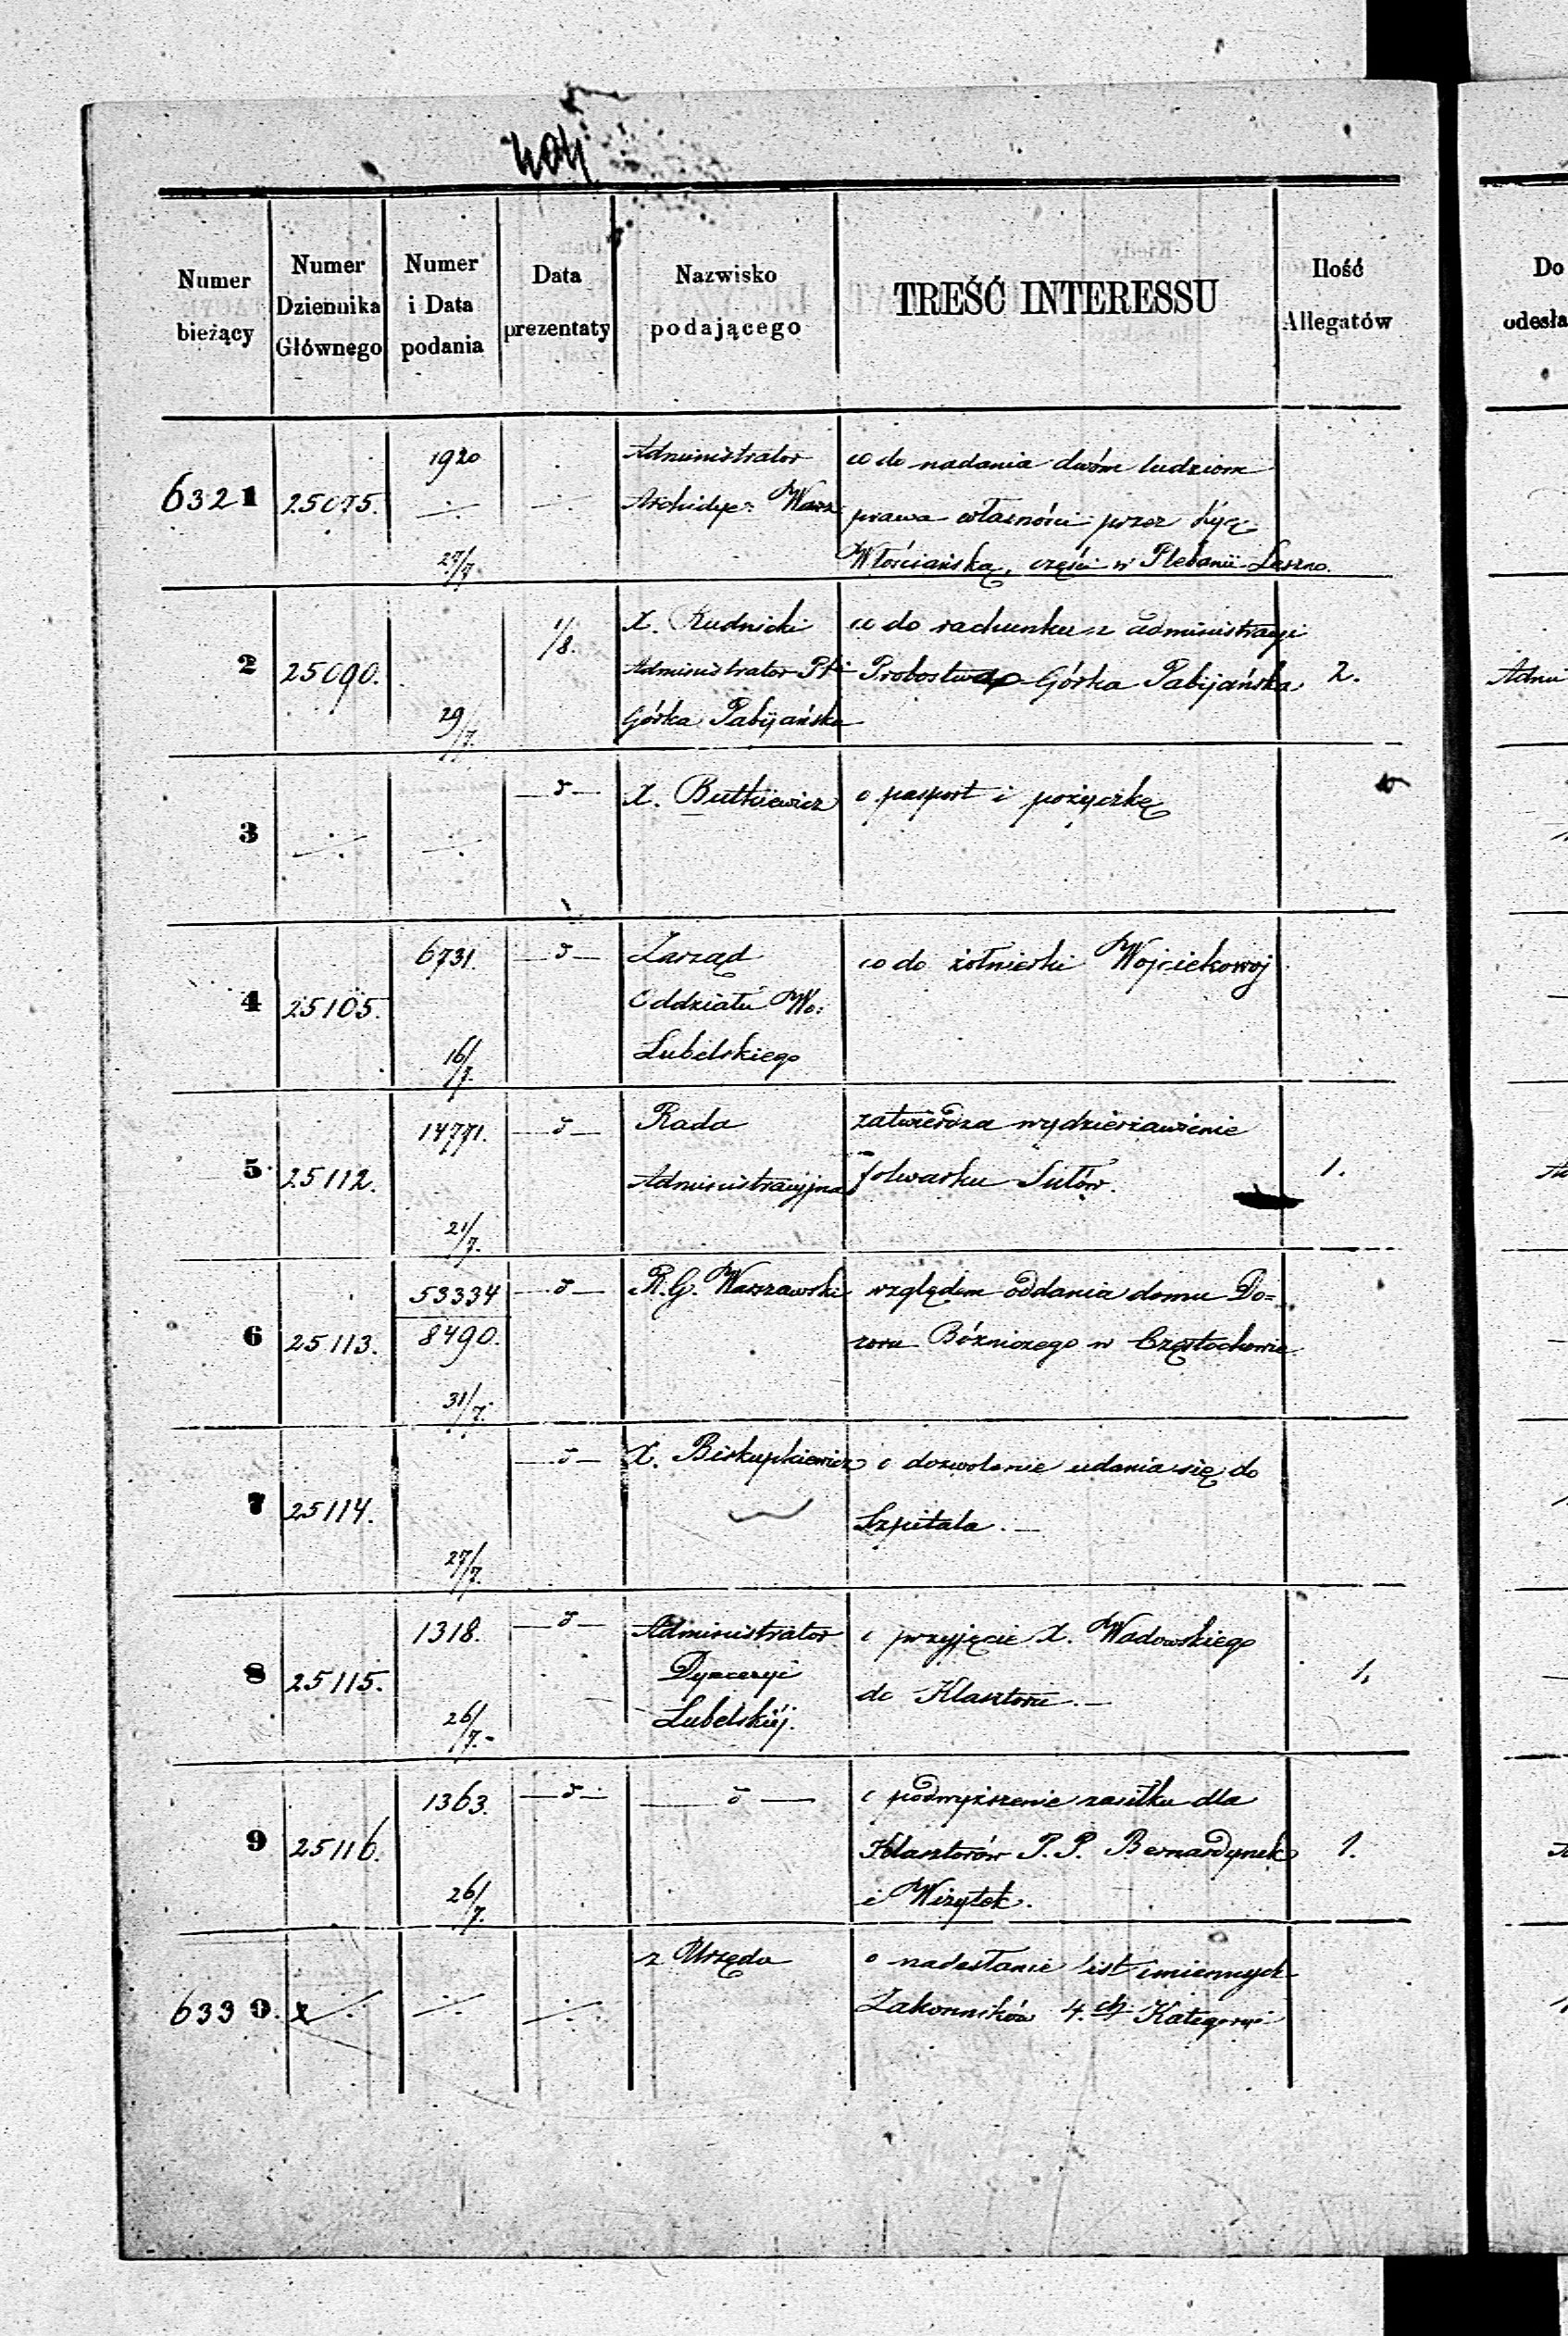 404
Numer bieżący
Numer Dziennika Głównego
Numer i Data podania
Data prezentaty
Nazwisko podającego
TREŚĆ INTERESSU
Ilość Allegatów
Do odesła
6321 25075. 1920 27/7. Administrator co do nadania dwóm ludziom
Archidye: Warz: prawa własności przez
Włościańską, części w Plebanii Leszno.
2 25090. 29/7. 1/8. X. Rudnicki co do rachunku z administracyi 2.
Administrator Pti Probostwa Górka Pabijańska
Górka Pabijańska
3 -/. -/. —ö— X. Butkiewicz o pasport i pożyczkę
4 25105. 6731. 16/7. —ö— Zarząd co do żołnierki Wojciekowej
Oddziału Wo:
Lubelskiego
5 25112. 14771. 21/7. —ö— Rada zatwierdza wydzierżawienie 1.
Administracyjna folwarku Sułów.
6 25113. 53334 8490. 31/7. —ö— R.G. Warszawski względem oddania domu Do=
zoru Bóżniczego w Częstochowie
7 25114. 27/7. —ö— X. Biskupkiewicz o dozwolenie udania się do
Szpitala. —
8 25115. 1318. 26/7. —ö— Administrator o przyjęcie X. Wadowskiego 1.
Dyecezyi do Klasztoru. —
Lubelskiéj.
9 25116. 1363. 26/7. —ö— —ö— o podwyższenie zasiłku dla
Klasztorów P.P. Bernardynek 1.
i Wizytek.
6330. -/. -/. -/. z Urzędu o nadesłanie list imiennych
Zakonników 4.ch Kategoryi